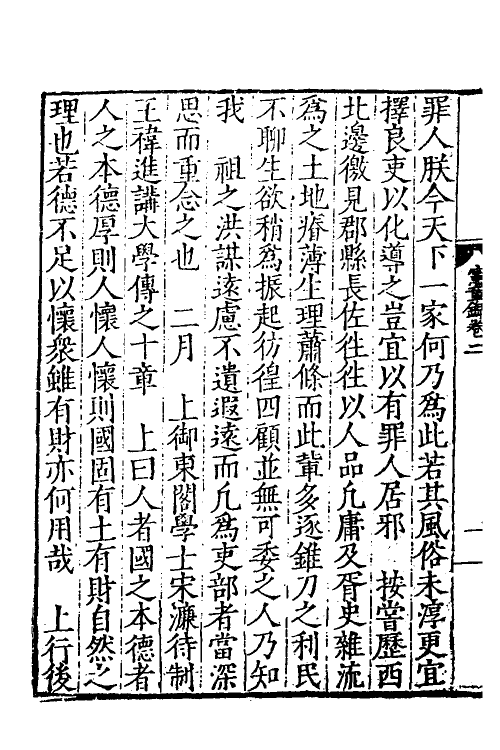 罪人朕今天下一家何乃爲此若其風俗未淳更宜
擇良吏以化導之豈宜以有罪人居邪　按嘗歷西
北邊徼見郡縣長佐徃徃以人品凡庸及胥史雜流
爲之土地瘠薄生理蕭條而此輩多逐錐刀之利民
不聊生欲稍爲振起彷徨四顧並無可委之人乃知
我　祖之洪謀遠慮不遺遐遠而凡爲吏部者當深
思而重念之也　二月　上御東閣學士宋濂待制
王禕進講大學傳之十章　上曰人者國之本德者
人之本德厚則人懷人懷則國固有土有財自然之
理也若德不足以懷衆雖有財亦何用哉　上行後
卷二
一